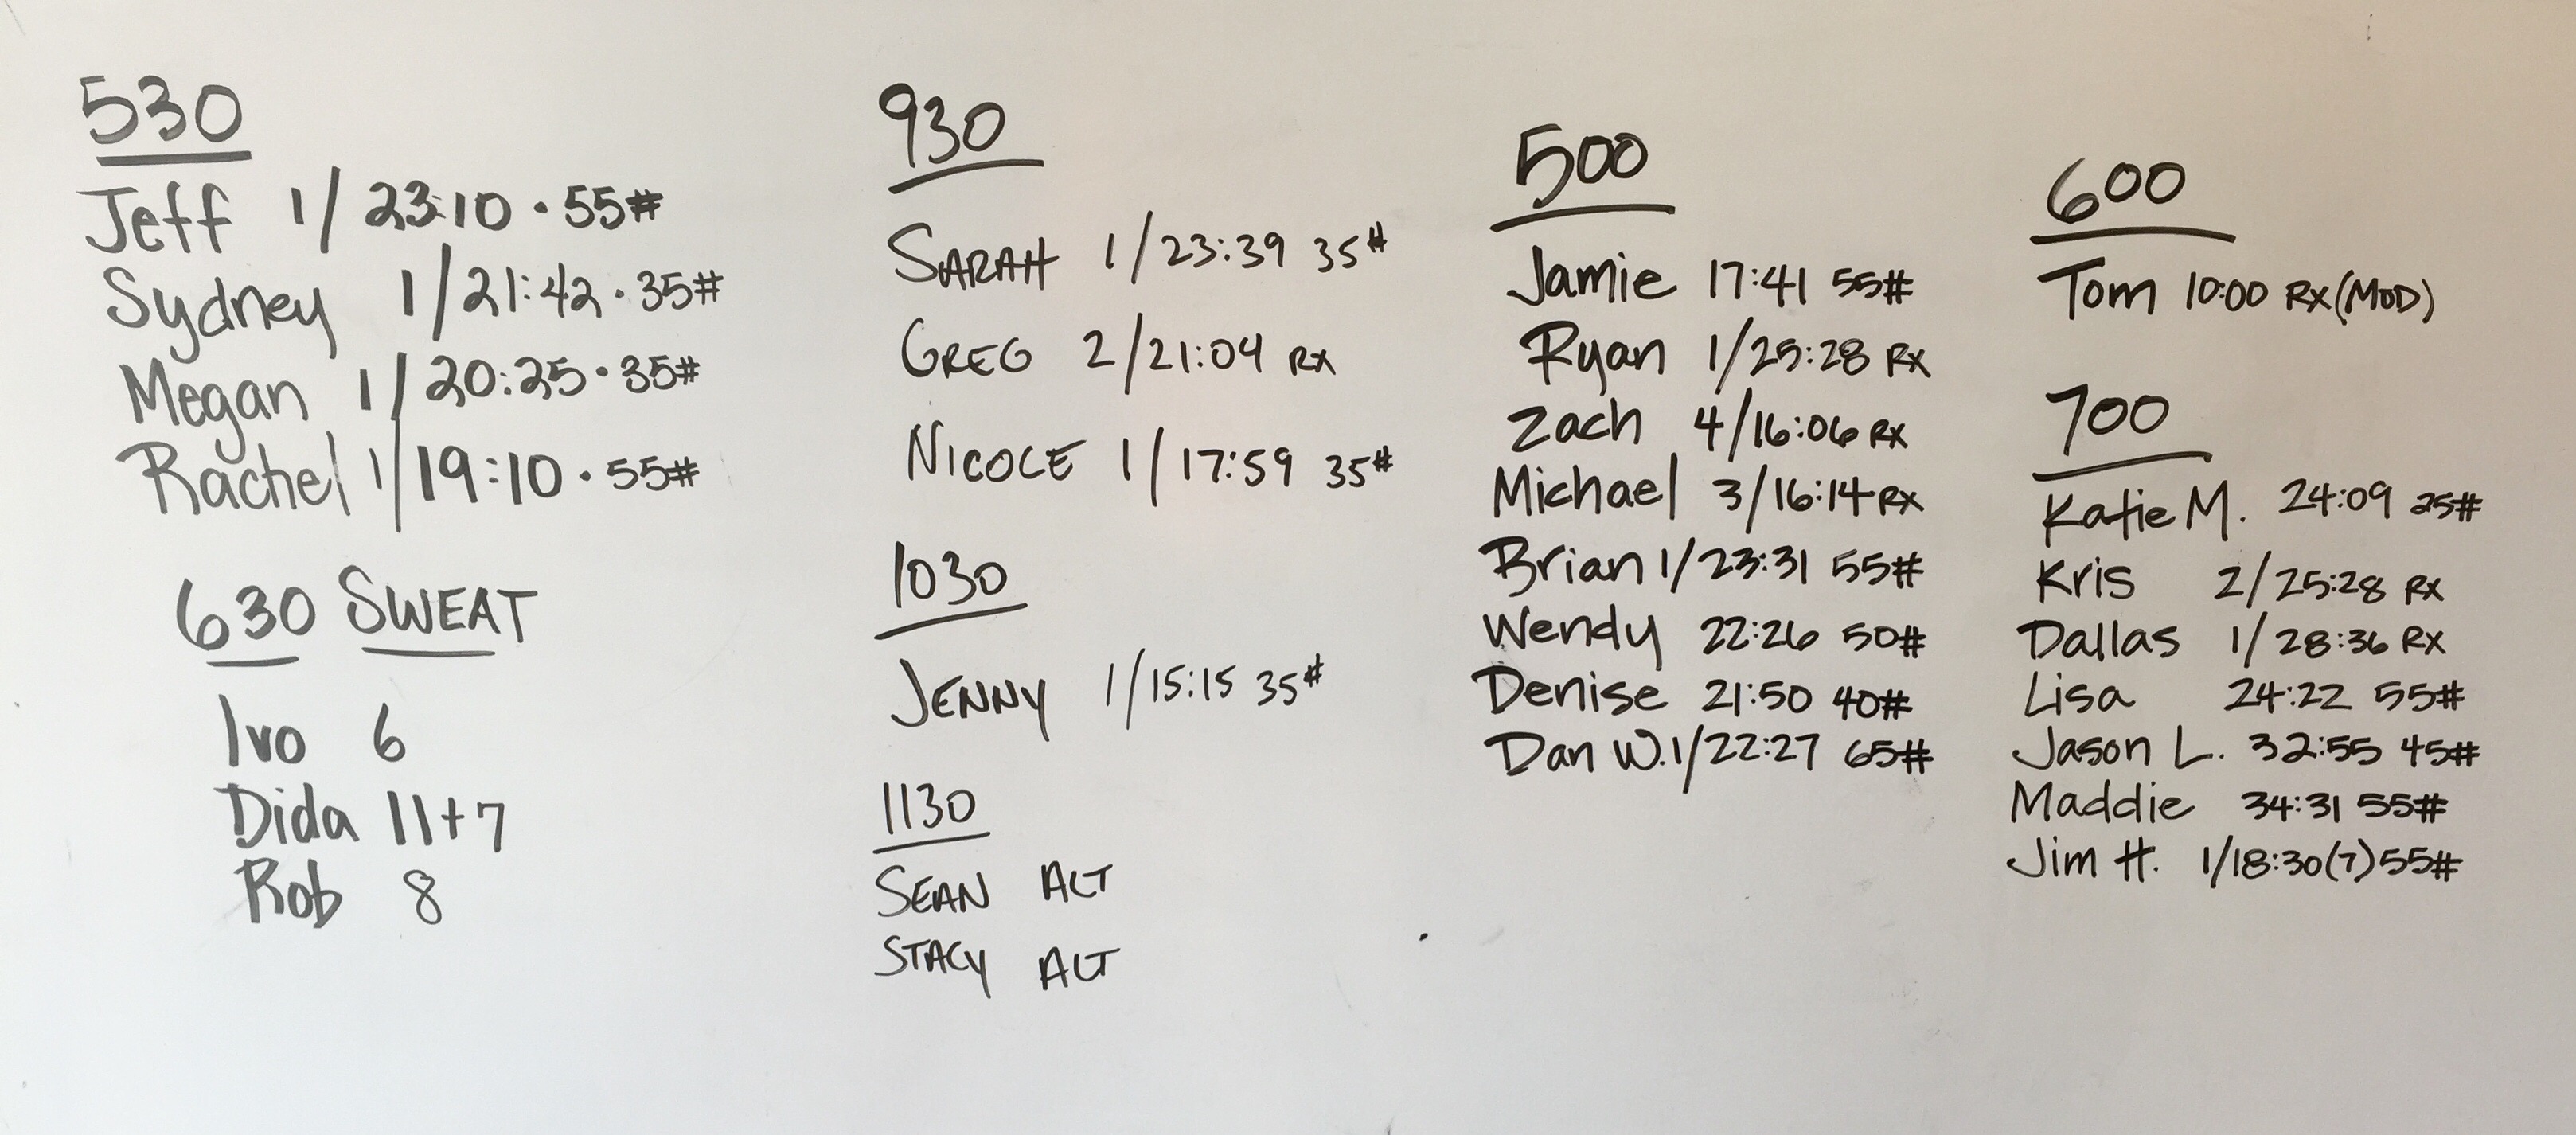 530
Jeff 1/ 23:10 · 55#
Sydney 1/21:42 · 35#
Megan 1/20:25 · 35#
Rachel 1/19:10 · 55#
630 SWEAT
Ivo 6
Dida 11+7
Rob 8
930
SARAH 1/23:39 35#
GREG 2/21:04 RX
NICOLE 1/17:59 35#
1030
JENNY 1/15:15 35#
1130
SEAN ALT
STACY ALT
500
Jamie 17:41 55#
Ryan 1/25:28 RX
Zach 4/16:06 RX
Michael 3/16:14 RX
Brian 1/23:31 55#
Wendy 22:26 50#
Denise 21:50 40#
Dan W. 1/22:27 65#
600
Tom 10:00 RX (MOD)
700
Katie M. 24:09 25#
Kris 2/25:28 RX
Dallas 1/28:36 RX
Lisa 24:22 55#
Jason L. 32:55 45#
Maddie 34:31 55#
Jim H. 1/18:30(7) 55#